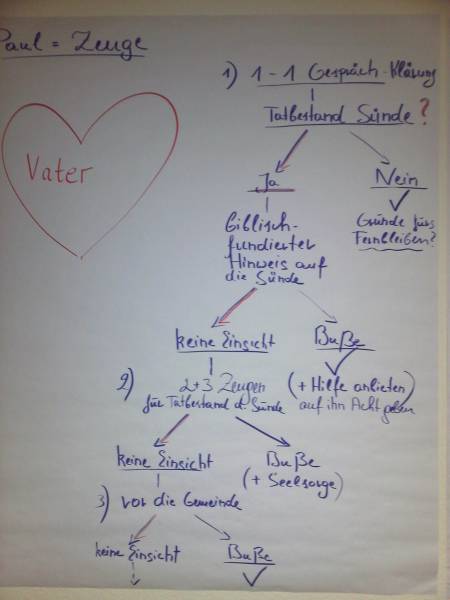 Paul = Zeuge
1) 1-1 Gespräch-Klärung
Tatbestand Sünde?
Vater
Ja
Nein
Gründe fürs
Fernbleiben?
Biblisch-
fundierter
Hinweis auf
die Sünde
keine Einsicht
Buße
2) 2+3 Zeugen
für Tatbestand d. Sünde
(+ Hilfe anbieten)
auf ihn Acht geben
keine Einsicht
Buße
(+ Seelsorge)
3) vor die Gemeinde
keine Einsicht
Buße